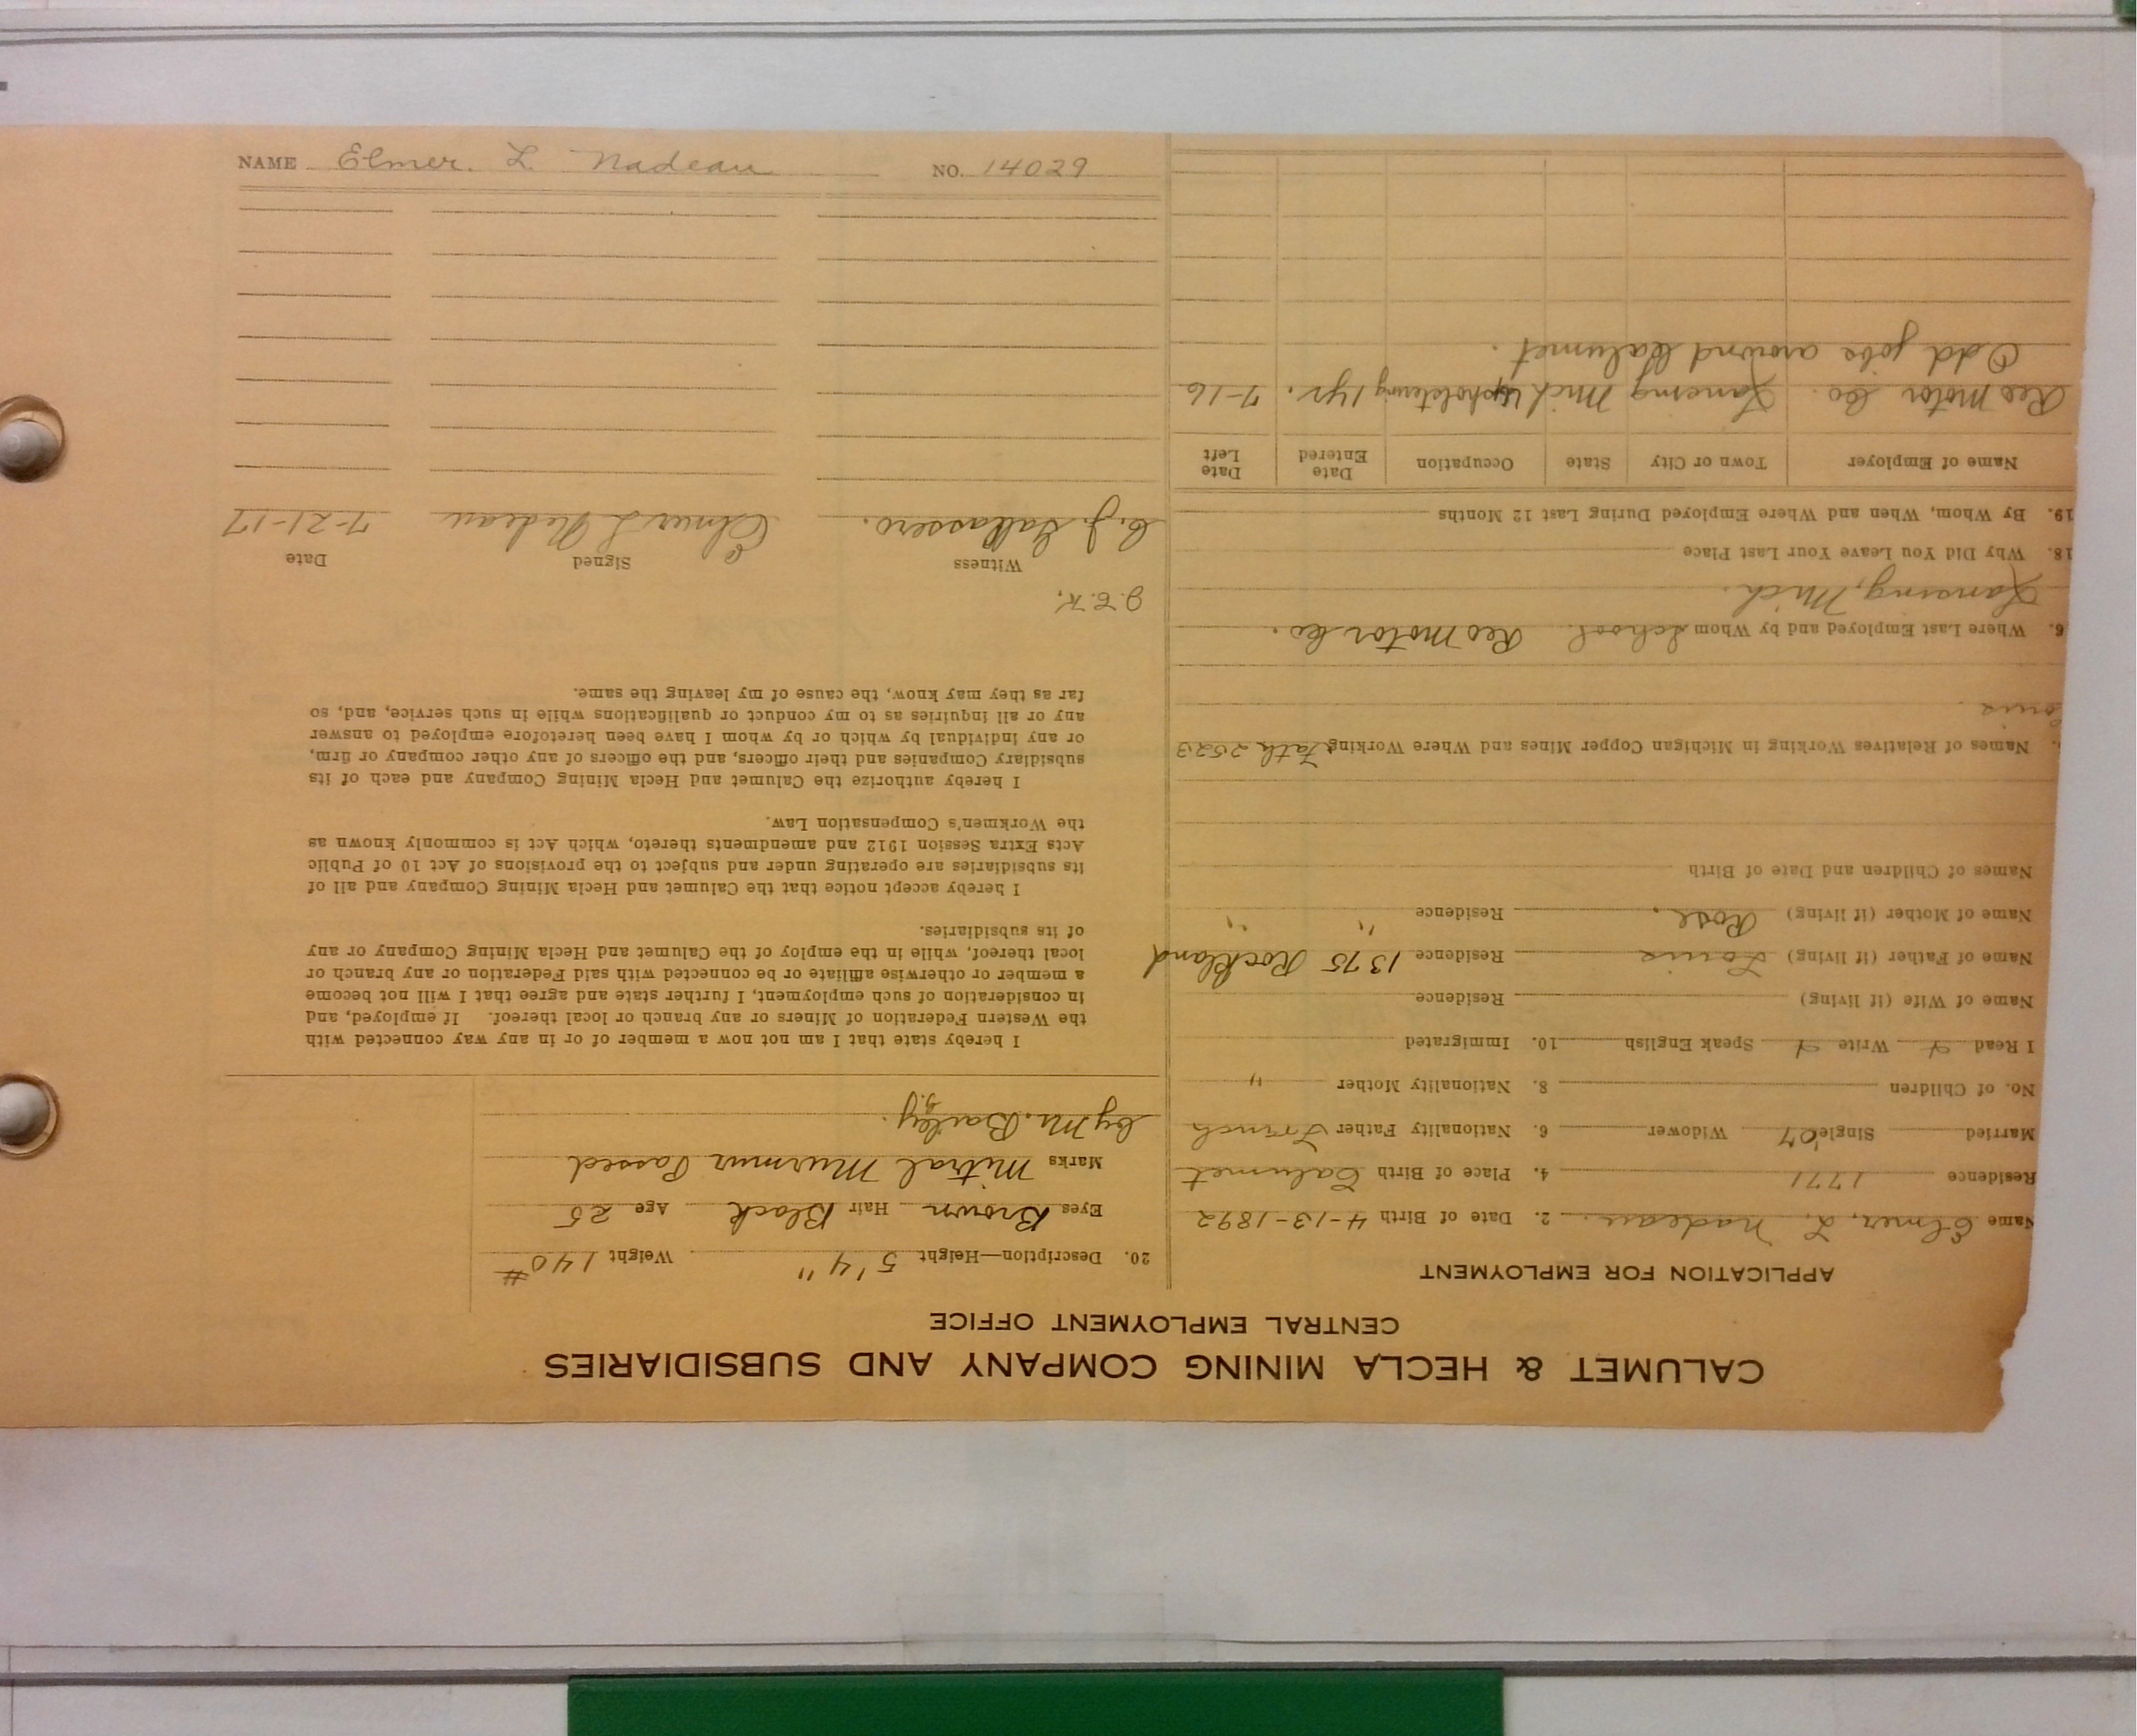 CALUMET & HECLA MINING COMPANY AND SUBSIDIARIES
CENTRAL EMPLOYMENT OFFICE
APPLICATION FOR EMPLOYMENT
Name Elmer. L. Nadeau. 2. Date of Birth 4-13-1892
Residence 1771 4. Place of Birth Calumet
Married Single Widower 6. Nationality Father French
No. of Children 8. Nationality Mother "
I Read Write Speak English 10. Immigrated
Name of Wife (if living) Residence
Name of Father (if living) Louis Residence 1375 Rockland
Name of Mother (if living) Rose. Residence " "
Names of Children and Date of Birth
Names of Relatives Working in Michigan Copper Mines and Where Working Fath 2523
Louis
6. Where Last Employed and by Whom School. Reo Motor Co.
Lansing, Mich.
18. Why Did You Leave Your Last Place
19. By Whom, When and Where Employed During Last 12 Months
Name of Employer Town or City State Occupation Date Entered Date Left
Reo Motor Co. Lansing Mich Upholstering 1 yr. 7-16
Odd jobs around Calumet.
20. Description—Height 5' 4" Weight 140 #
Eyes Brown Hair Black Age 25
Marks Mitral Murmur Passed
by Mr. Bailey.
I hereby state that I am not now a member of or in any way connected with
the Western Federation of Miners or any branch or local thereof. If employed, and
in consideration of such employment, I further state and agree that I will not become
a member or otherwise affiliate or be connected with said Federation or any branch or
local thereof, while in the employ of the Calumet and Hecla Mining Company or any
of its subsidiaries.
I hereby accept notice that the Calumet and Hecla Mining Company and all of
its subsidiaries are operating under and subject to the provisions of Act 10 of Public
Acts Extra Session 1912 and amendments thereto, which Act is commonly known as
the Workmen's Compensation Law.
I hereby authorize the Calumet and Hecla Mining Company and each of its
subsidiary Companies and their officers, and the officers of any other company or firm,
or any individual by which or by whom I have been heretofore employed to answer
any or all inquiries as to my conduct or qualifications while in such service, and, so
far as they may know, the cause of my leaving the same.
J.E.K.
Witness Signed Date
C. J. Elmer L Nadeau 7-21-17
NAME Elmer. L. Nadeau NO. 14029